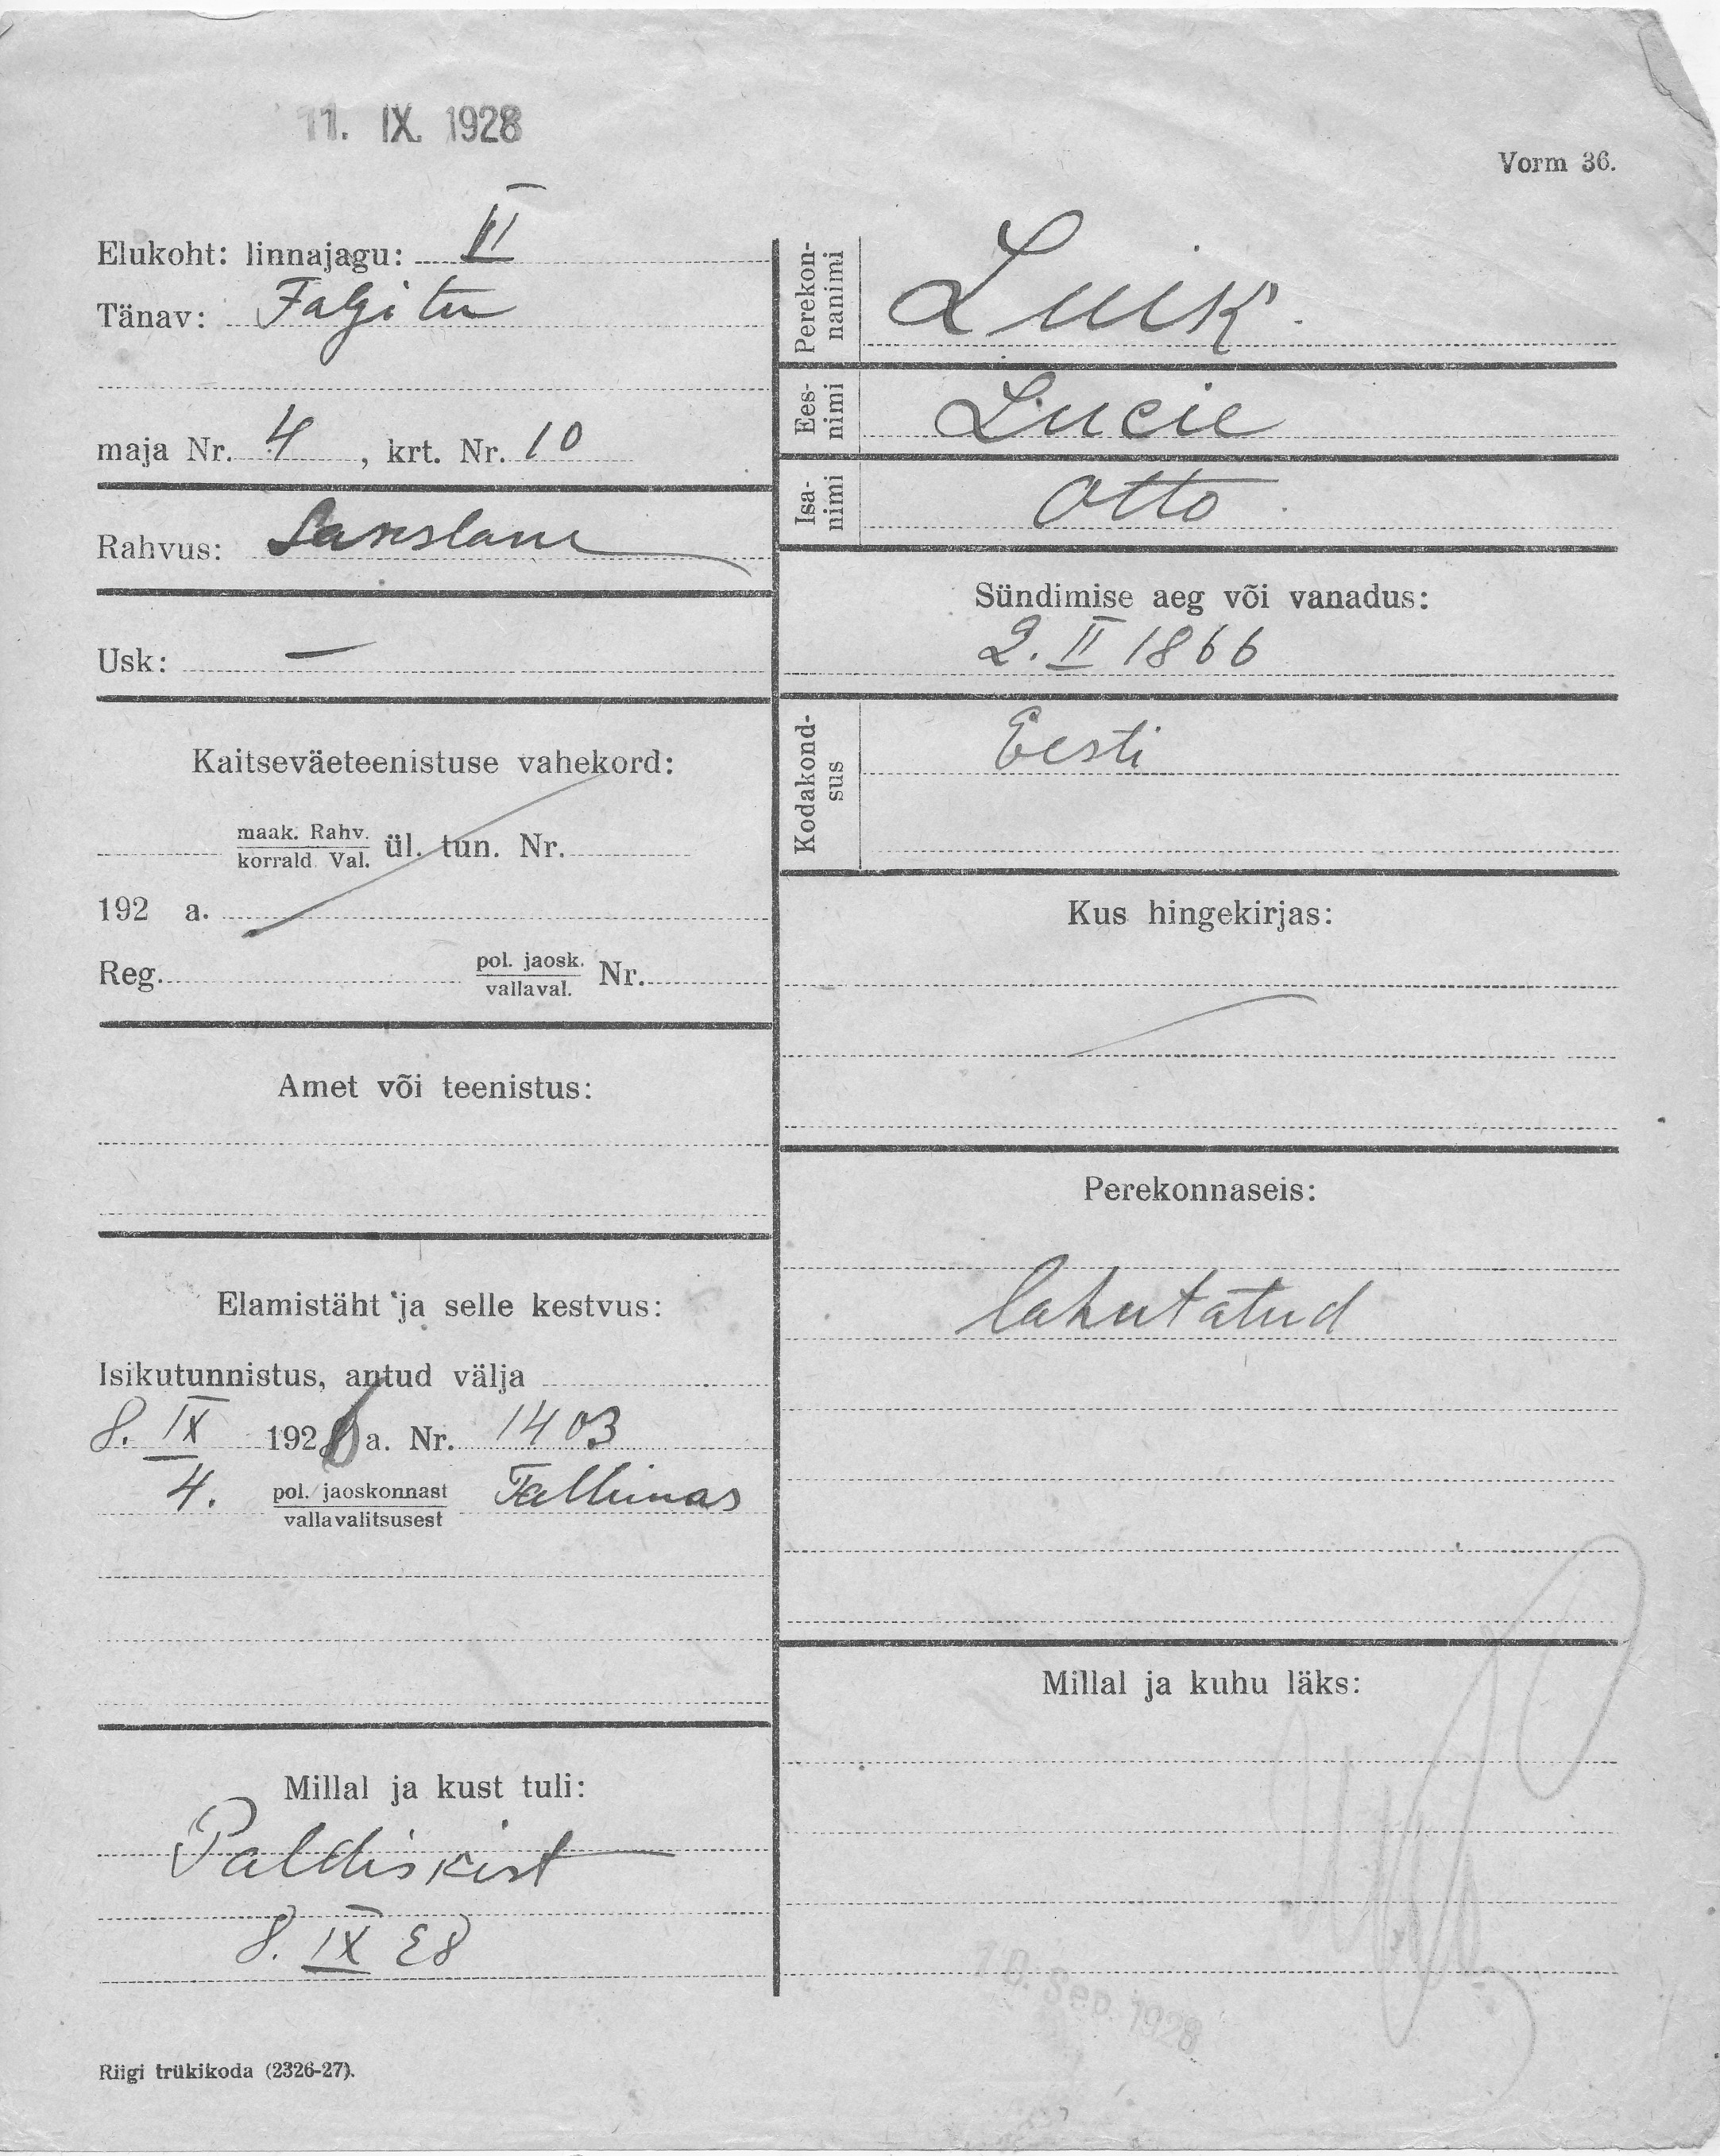 11. IX. 1928
Vorm 36.
Elukoht: linnajagu: II
Tänav: Falgi tee
maja Nr. 4, krt. Nr. 10
Rahvus: Sakslane
Usk: —
Kaitseväeteenistuse vahekord:
maak. Rahv.
korrald. Val. ül. tun. Nr.
192 a.
Reg. pol. jaosk.
vallaval. Nr.
Amet või teenistus:
Elamistäht ja selle kestvus:
Isikutunnistus, antud välja
8. IX 1928 a. Nr. 1403
4. pol. jaoskonnast Tallinnas
vallavalitsusest
Millal ja kust tuli:
Paldiskist
8. IX 28
Perekon-
nanimi
Luik.
Ees-
nimi
Lucie
Isa-
nimi
Otto.
Sündimise aeg või vanadus:
2. II 1866
Kodakond-
sus
Eesti
Kus hingekirjas:
Perekonnaseis:
lahutatud
Millal ja kuhu läks:
10. Sep. 1928
Riigi trükikoda (2326-27).